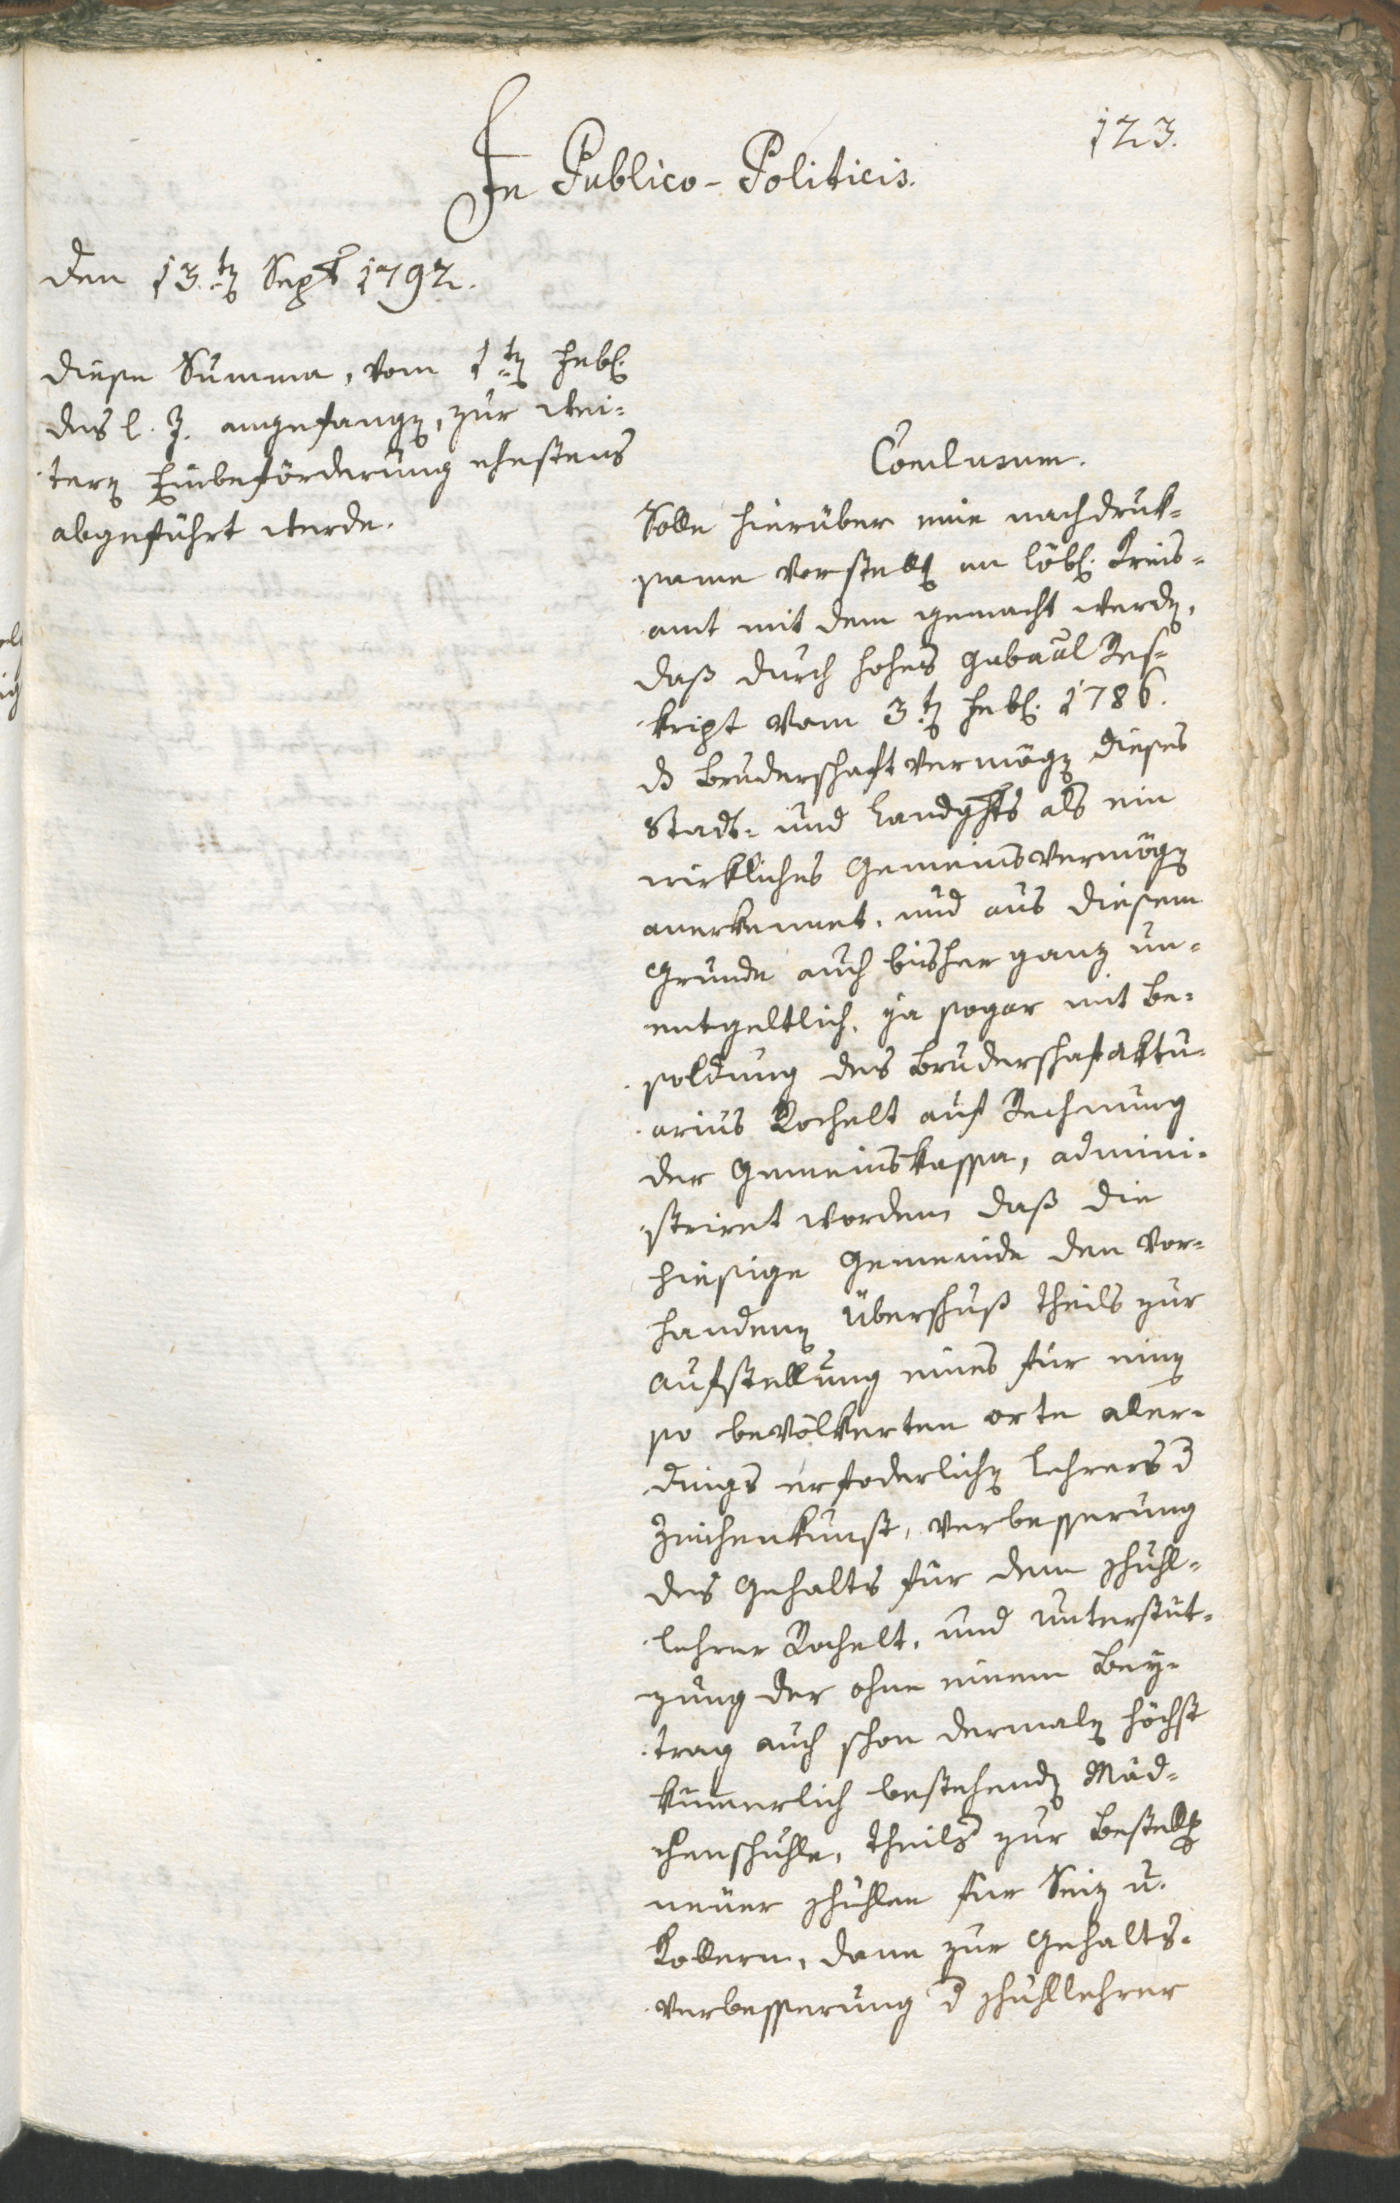 123.
In Publico-Politicis.
den 13.ten Sept 1792.
diese Summa, vom 1ten Febr.
des l. J. angefangen, zur wei-
tern Einbeförderung ehestens
abgeführt werde.
Conclusum.
Solle hierüber eine nachdruk-
same Vorstellg an löbl. Kreis-
amt mit dem gemacht werden,
daß durch hohes Gubaal Res-
kript vom 3ten Febr. 1786.
ds Bruderschaft Vermögen dieses
Stadt- und Landghts als ein
wirkliches Gemeinsvermögen
anerkennet, und aus diesem
Grunde auch bisher ganz un-
entgeltlich, ja sogar mit Be-
soldung des Bruderschafaktu-
arius Rochelt auf Rechnung
der Gemeinskassa, admini-
striret worden daß die
hiesige Gemeinde den vor-
handenen Überschuß theils zur
Aufstellung eines für einen
so bevölkerten Orte aller-
dings erfoderlichen Lehrers d
Zeichenkunst, Verbesserung
des Gehalts für dem Schuhl-
lehrer Rochelt, und Unterstüt-
zung der ohne einem Bey-
trag auch schon dermalen höchst
kümmerlich bestehenden Mäd-
chenschuhle, theils zur Bestellg
neuer Schuhlen für Seiz u.
Kollern, dann zur Gehalts-
verbesserung d Schuhllehrer